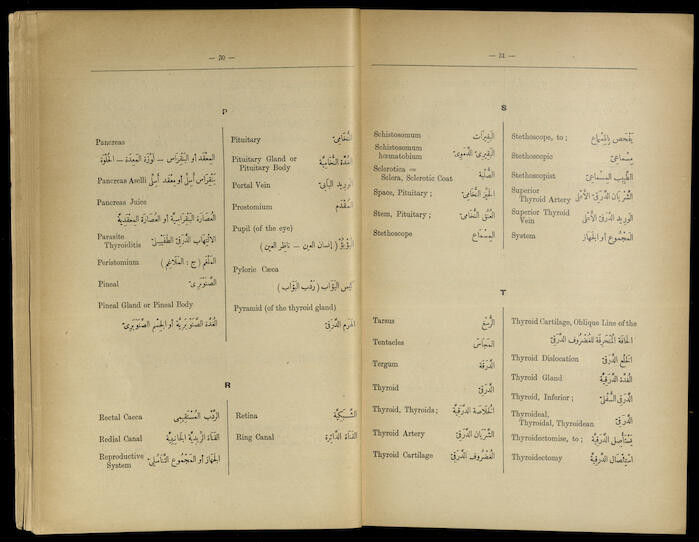 — 30 —
P
Pancreas
المعقد أو البنقراس — لوزة المعدة — الحلوة
Pancreas Aselli بنقراس أسلّي أو معقد أسلّي
Pancreas Juice
العصارة البنقراسية أو العصارة المعقدية
Parasite
Thyroiditis الالتهاب الدرقي الطفيلي
Peristomium الملغم (ج : الملاغم)
Pineal الصنوبري
Pineal Gland or Pineal Body
الغدة الصنوبرية أو الجسم الصنوبري
Pituitary النخامي
Pituitary Gland or
Pituitary Body الغدة النخامية
Portal Vein الوريد البابي
Prostomium المقدم
Pupil (of the eye)
البؤبؤ (إنسان العين — ناظر العين)
Pyloric Cæca
كيس البواب (ردب البواب)
Pyramid (of the thyroid gland)
الهرم الدرقي
R
Rectal Caeca الردب المستقيمي
Redial Canal القناة الريدية الجانبية
Reproductive
System الجهاز أو المجموع التناسلي
Retina الشبكية
Ring Canal القناة الدائرة
— 31 —
S
Schistosomum البقريات
Schistosomum
hœmatobium البقري الدموي
Sclerotica =
Sclera, Sclerotic Coat الصلبة
Space, Pituitary ; الحيز النخامي
Stem, Pituitary ; العنق النخامي
Stethoscope المسماع
Stethoscope, to ; يفحص بالمسماع
Stethoscopic مسماعي
Stethoscopist الطبيب المسماعي
Superior
Thyroid Artery الشريان الدرقي الأعلى
Superior Thyroid
Vein الوريد الدرقي الأعلى
System المجموع أو الجهاز
T
Tarsus الرسغ
Tentacles المجاس
Tergum الدرقة
Thyroid الدرقي
Thyroid, Thyroids ; الخلاصة الدرقية
Thyroid Artery الشريان الدرقي
Thyroid Cartilage الغضروف الدرقي
Thyroid Cartilage, Oblique Line of the
الحافة المنحرفة للغضروف الدرقي
Thyroid Dislocation الخلع الدرقي
Thyroid Gland الغدة الدرقية
Thyroid, Inferior ; الدرقي السفلي
Thyroideal,
Thyroidal, Thyroidean الدرقي
Thyroidectomise, to ; يستأصل الدرقية
Thyroidectomy استئصال الدرقية